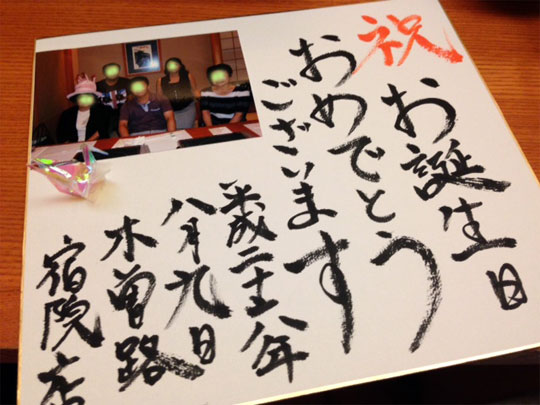 祝
お誕生日
おめでとう
ございます
平成二十八年
八月九日
木曽路
宿院店